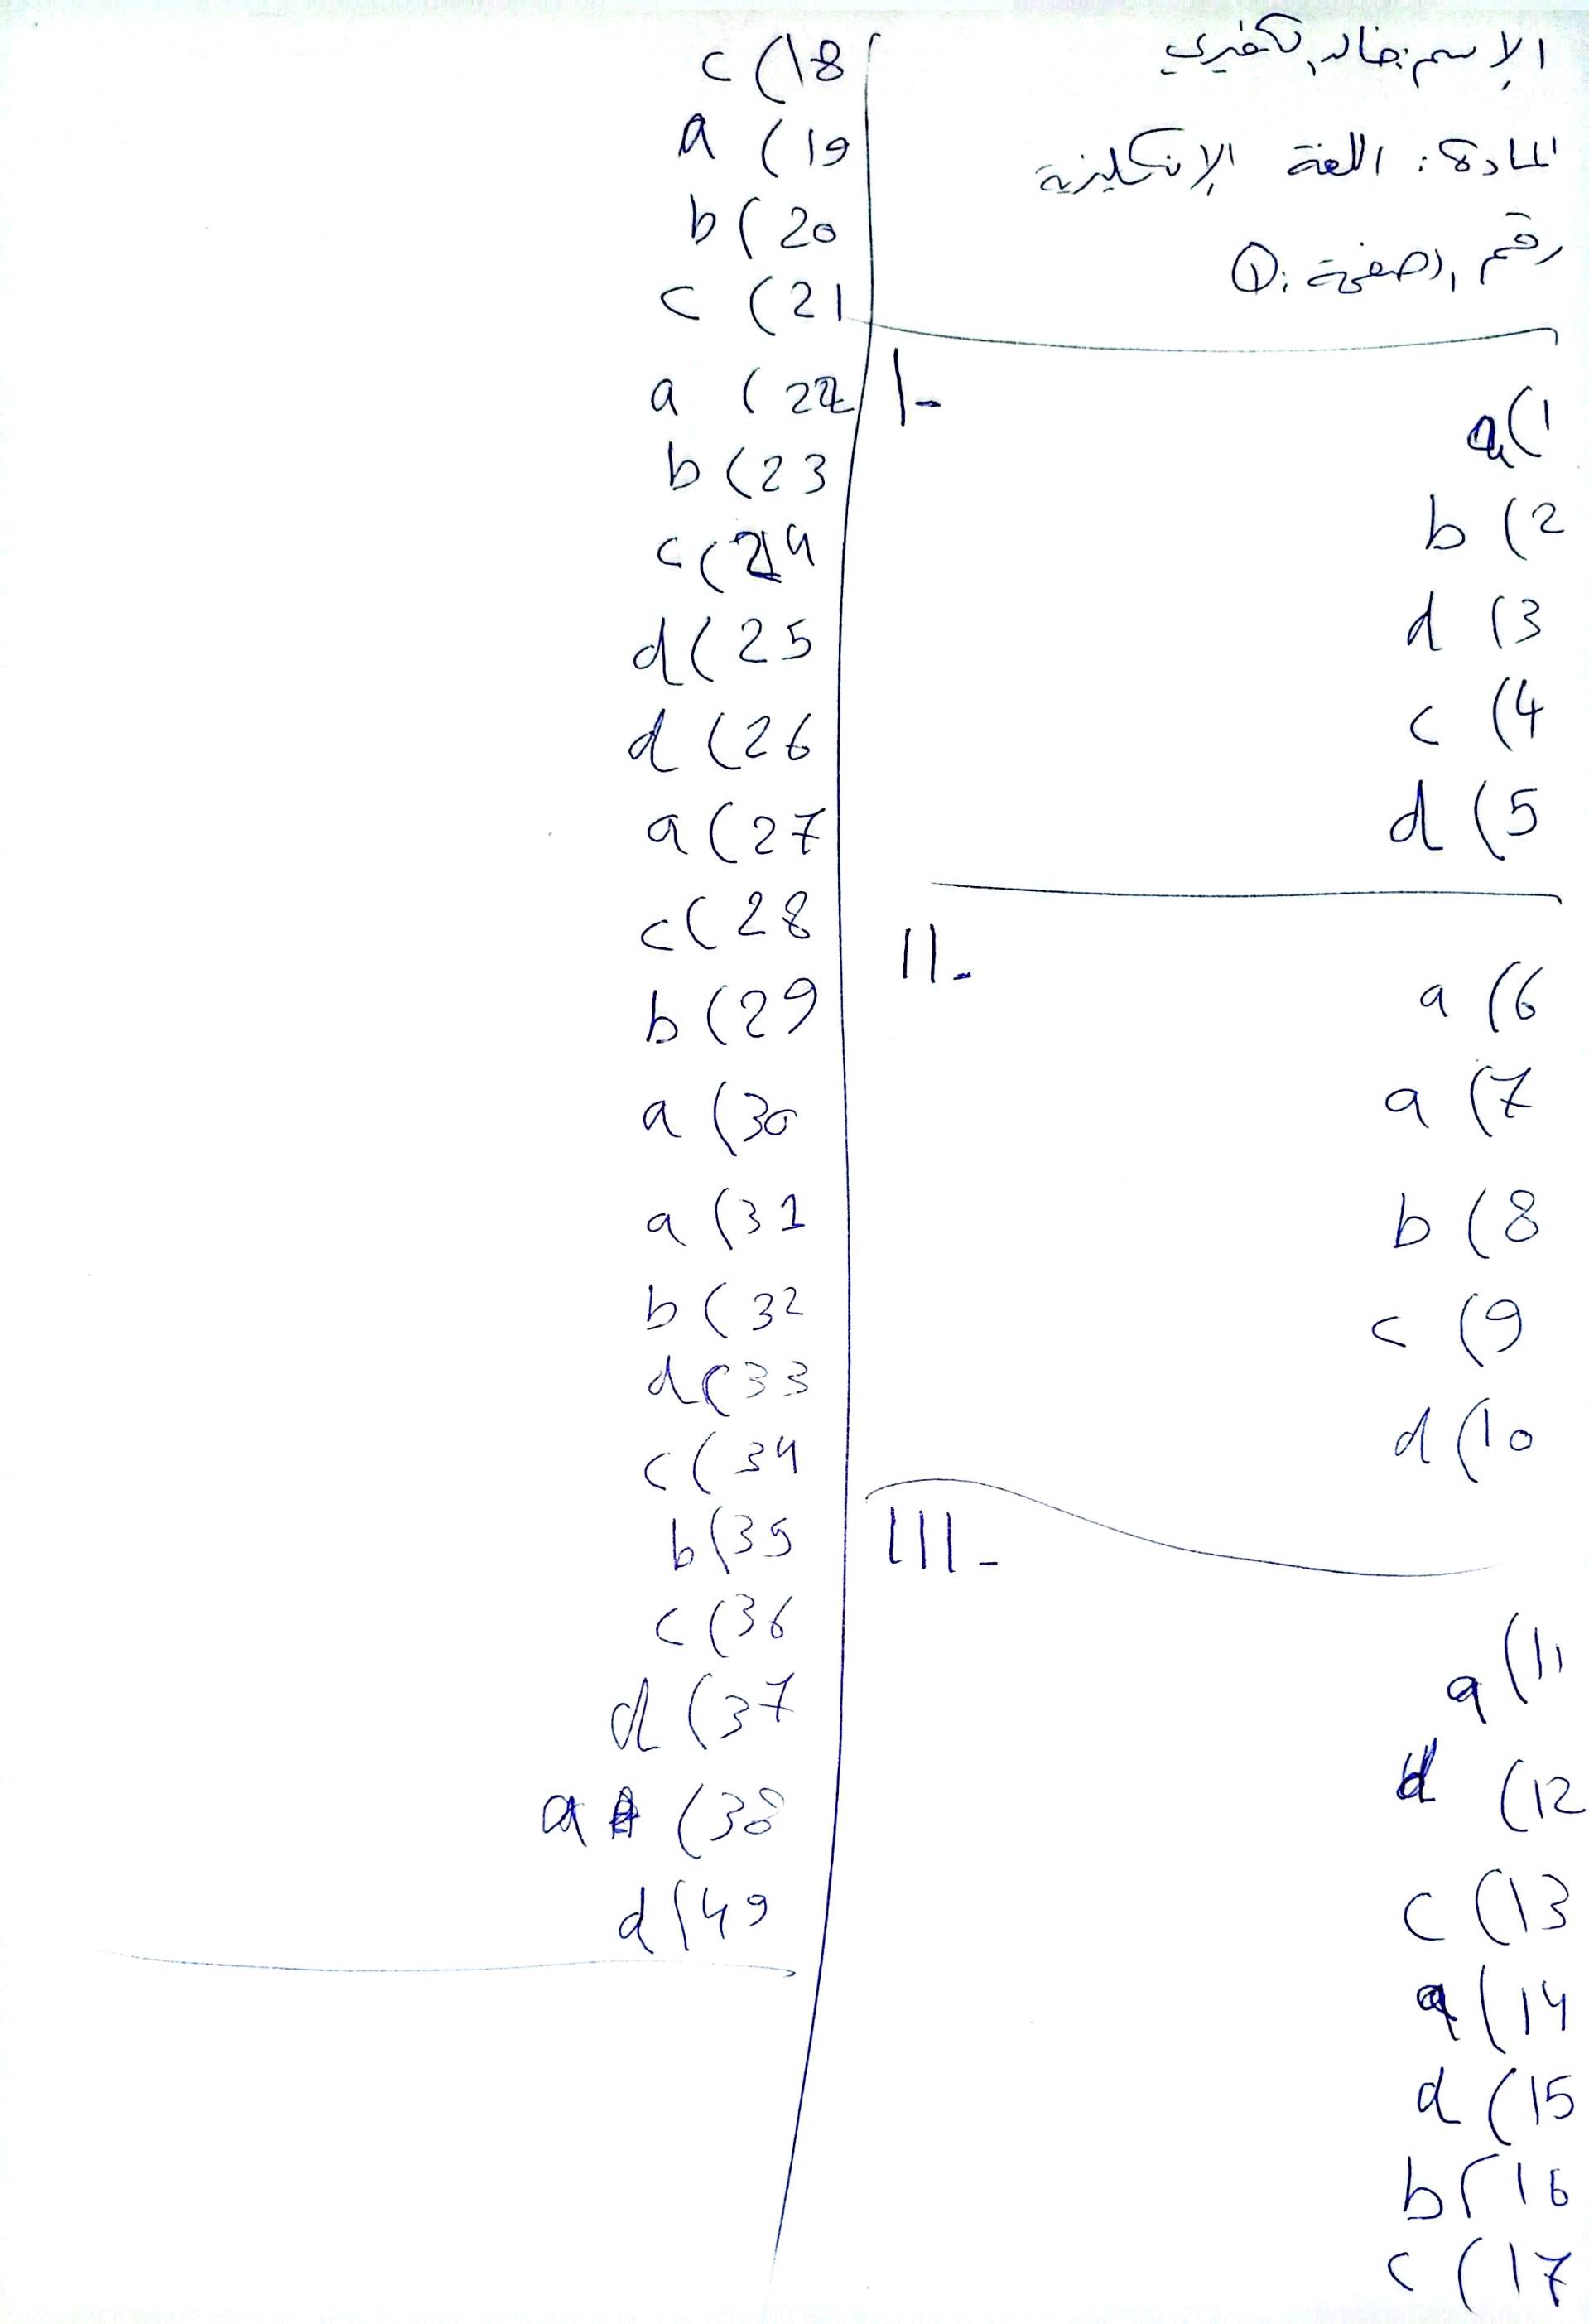 الإسم: خالد الكفيري
المادة: اللغة الإنكليزية
رقم الصفحة: ①
I-
a (1
b (2
d (3
c (4
d (5
II-
a (6
a (7
b (8
c (9
d (10
III-
a (11
d (12
c (13
a (14
d (15
b (16
c (17
c (18
a (19
b (20
c (21
a (22
b (23
c (24
d (25
d (26
a (27
c (28
b (29
a (30
a (31
b (32
d (33
c (34
b (35
c (36
d (37
a (38
d (49